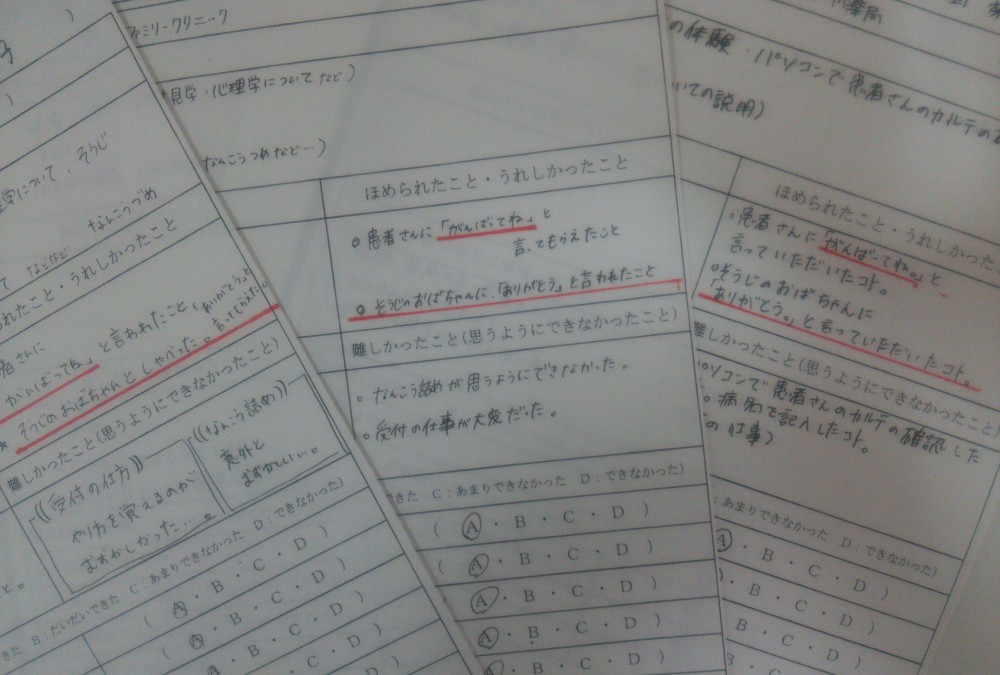 )
理学について、そうじ
なんこうつめ
などなど
れたこと・うれしかったこと
者さんに
かんばってね」と言われたこと
「ありがとう」と
言ってもらえた。
そうじのおばちゃんとしゃべった。
難しかったこと(思うようにできなかったこと)
((受付の仕方))
やり方を覚えるのが
むずかしかった…。
((なんこう詰め))
意外と
むずかしい…。
と。
B:だいたいできた C:あまりできなかった D:できなかった)
( A ・ B ・ C ・ D )
( A ・ B ・ C ・ D )
A ・ B ・ C ・ D )
ファミリークリニック
見学・心理学について など)
なんこうつめなど…)
ほめられたこと・うれしかったこと
○患者さんに「がんばってね」と
言ってもらえたこと
○そうじのおばちゃんに、「ありがとう」と言われたこと
難しかったこと(思うようにできなかったこと)
○なんこう詰めが思うようにできなかった。
○受付の仕事が大変だった。
できた C:あまりできなかった D:できなかった)
( A ・ B ・ C ・ D )
( A ・ B ・ C ・ D )
A ・ B ・ C ・ D )
A ・ B ・ C ・ D )
・ B ・ C ・ D )
薬局
の体験・パソコンで患者さんのカルテの
いての説明)
ほめられたこと・うれしかったこと
○患者さんに「がんばってね。」と
言っていただいたコト。
○そうじのおばちゃんに
「ありがとう。」と言っていただいたコト。
難しかったこと(思うようにできなかったこと)
パソコンで患者さんのカルテの確認した
○病名を記入したコト。
の仕事)
:あまりできなかった D:できなかった)
A ・ B ・ C ・ D )
・ B ・ C ・ D )
・ B ・ C ・ D )
B ・ C ・ D )